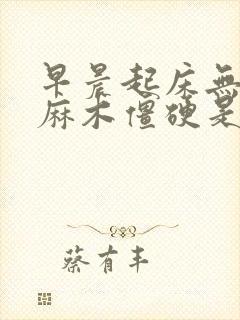 早晨起床無
麻木僵硬是
蔡有丰